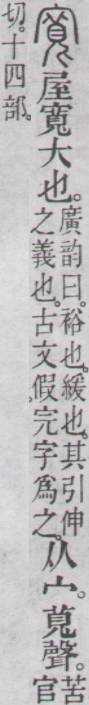 寬屋寬大也。廣韵曰。裕也。緩也。其引伸之義也。古文假完字爲之。从宀。萈聲。苦官
切。十四部。